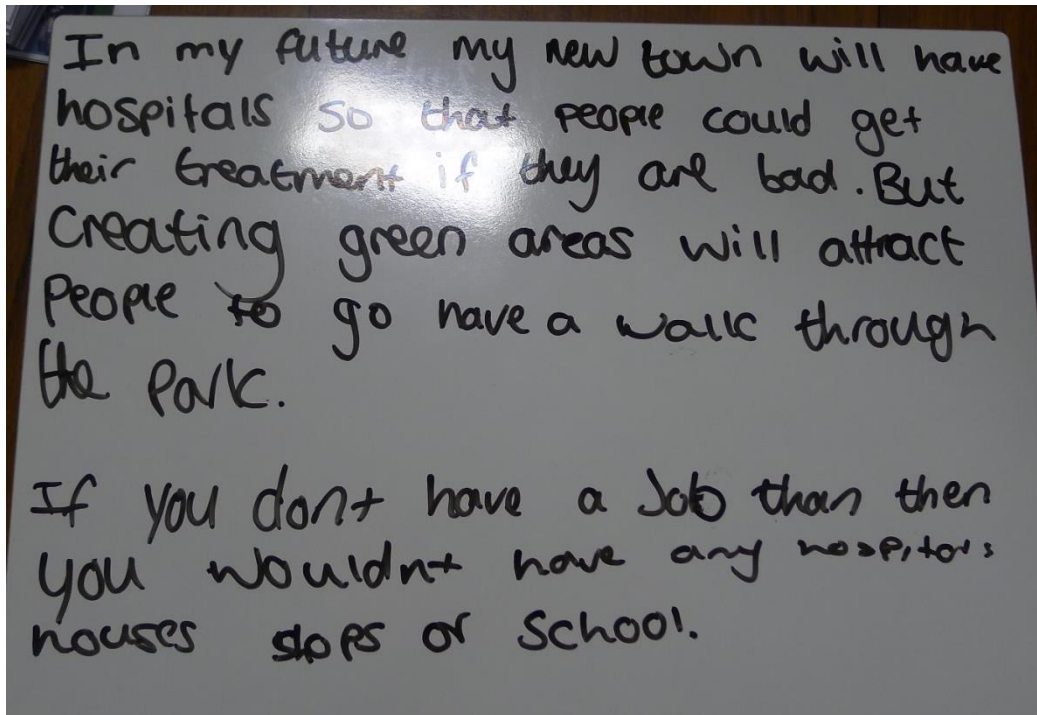 In my future my new town will have
hospitals so that people could get
their treatment if they are bad. But
Creating green areas will attract
People to go have a walk through
the Park.
If you dont have a Job than then
you wouldnt have any hospitols
houses shops or School.